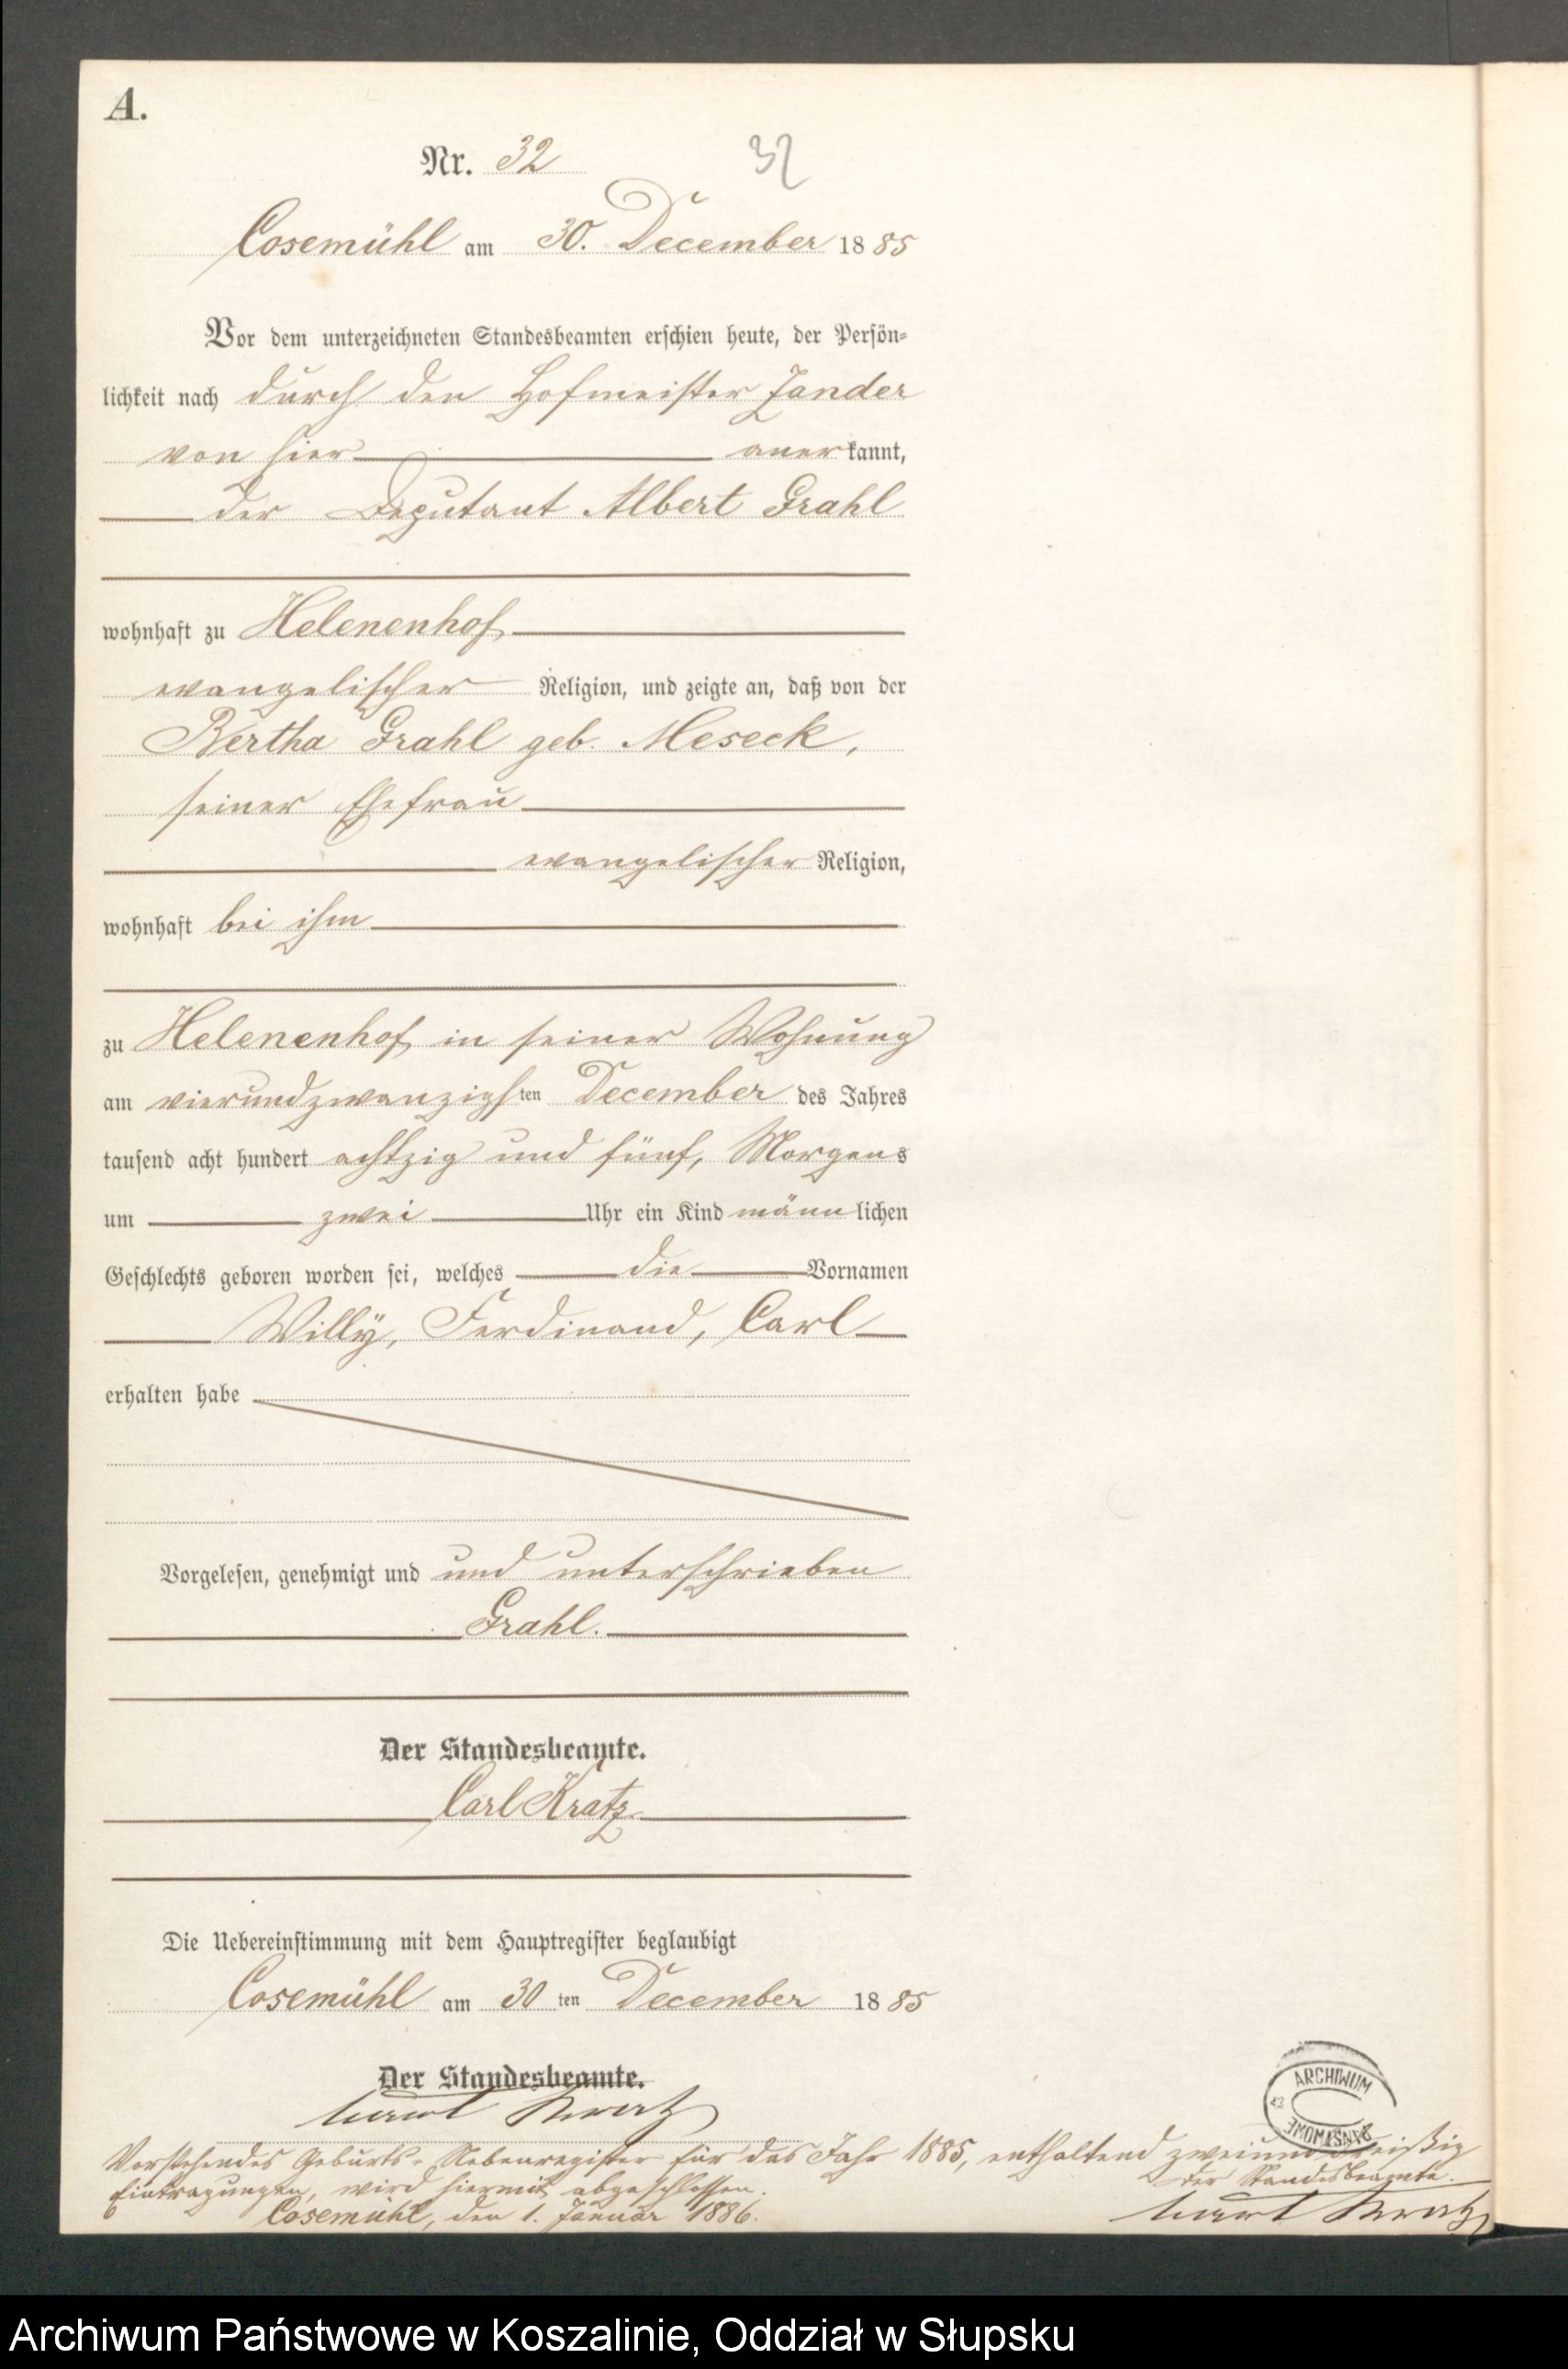 A.
Nr. 32 32
Cosemühl am 30. December 1885
Vor dem unterzeichneten Standesbeamten erschien heute, der Persön-
lichkeit nach durch den Hofmeister Zander
von hier anerkannt,
der Deputant Albert Grahl
wohnhaft zu Helenenhof
evangelischer Religion, und zeigte an, daß von der
Bertha Grahl geb. Meseck,
seiner Ehefrau
evangelischer Religion,
wohnhaft bei ihm
zu Helenenhof in seiner Wohnung
am vierundzwanzigsten December des Jahres
tausend acht hundert achtzig und fünf, Morgens
um zwei Uhr ein Kind männlichen
Geschlechts geboren worden sei, welches die Vornamen
Willy, Ferdinand, Carl
erhalten habe
Vorgelesen, genehmigt und und unterschrieben
Grahl.
Der Standesbeamte.
Carl Kratz
Die Uebereinstimmung mit dem Hauptregister beglaubigt
Cosemühl am 30 ten December 1885
Der Standesbeamte.
Carl Kratz
Vorstehendes Geburts-Nebenregister für das Jahr 1885, enthaltend zweiunddreißig
Eintragungen, wird hiermit abgeschlossen. Der Standesbeamte.
Cosemühl, den 1. Januar 1886. Carl Kratz
ARCHIWUM
Archiwum Państwowe w Koszalinie, Oddział w Słupsku